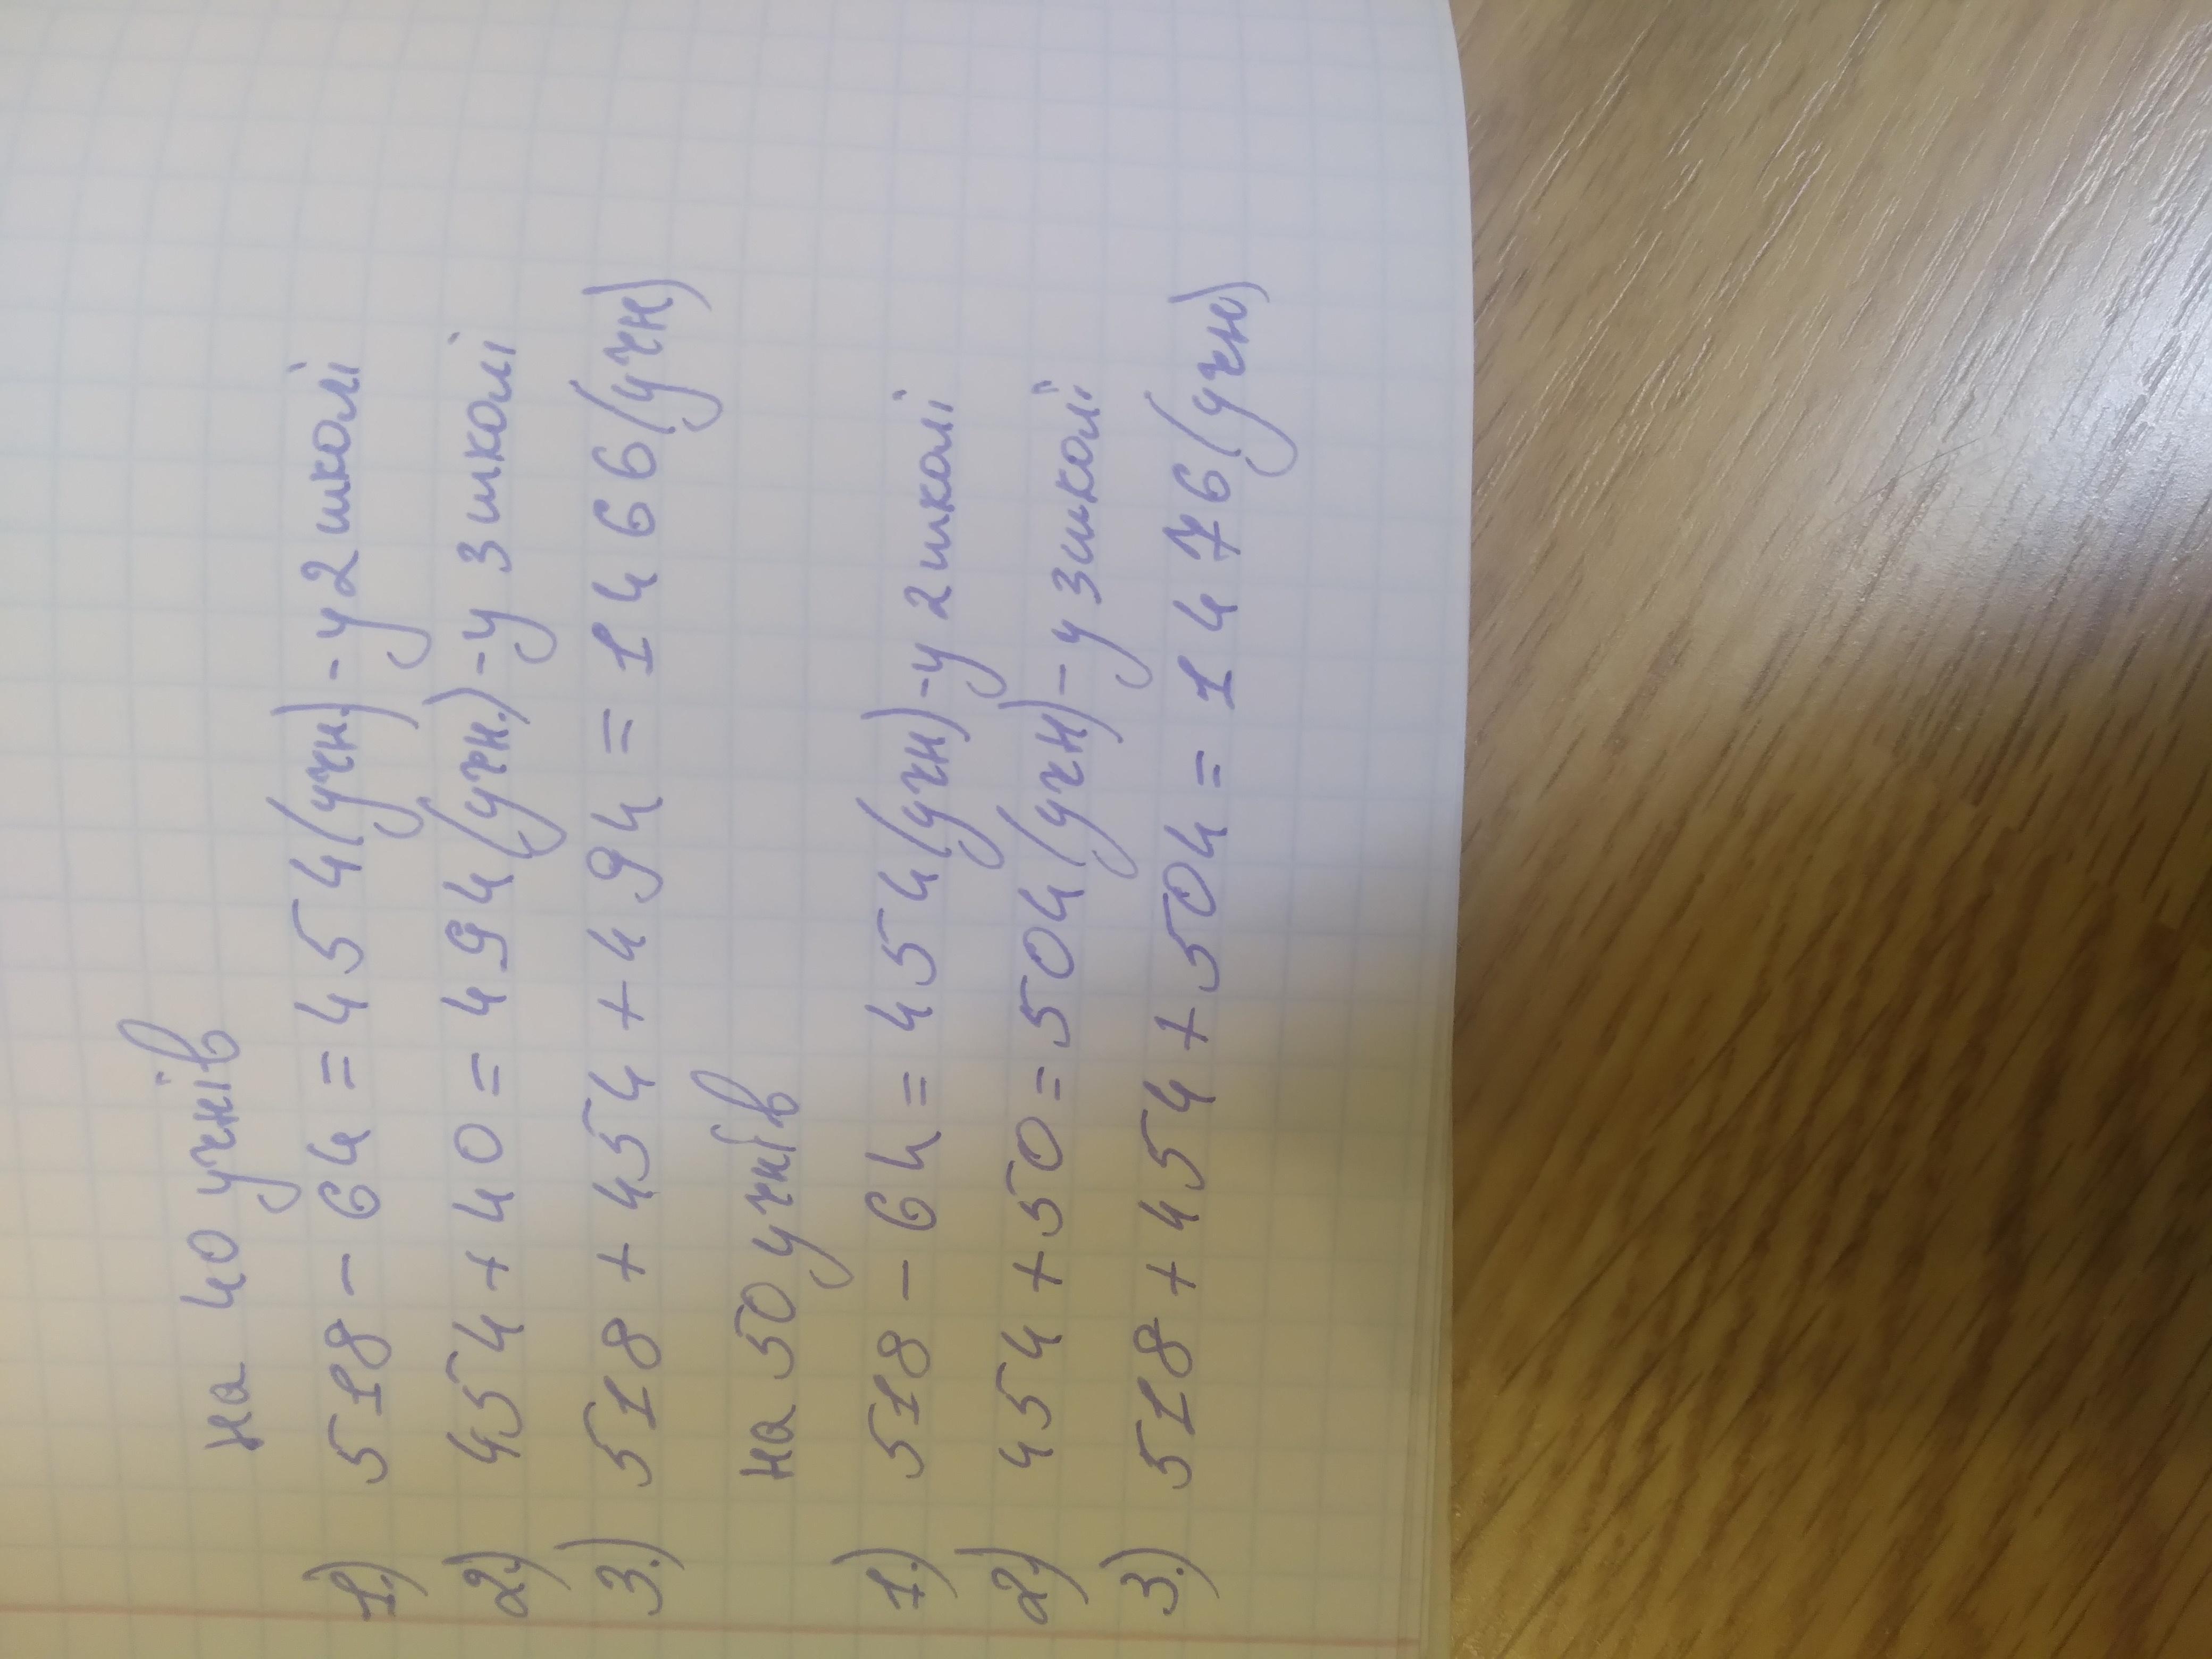 на 40 учнів
1.) 518 - 64 = 454 (учн.) - у 2 школі
2.) 454 + 40 = 494 (учн.) - у 3 школі
3.) 518 + 454 + 494 = 1466 (учн)
на 50 учнів
1.) 518 - 64 = 454 (учн) - у 2 школі
2.) 454 + 50 = 504 (учн) - у 3 школі
3.) 518 + 454 + 504 = 1476 (учн)